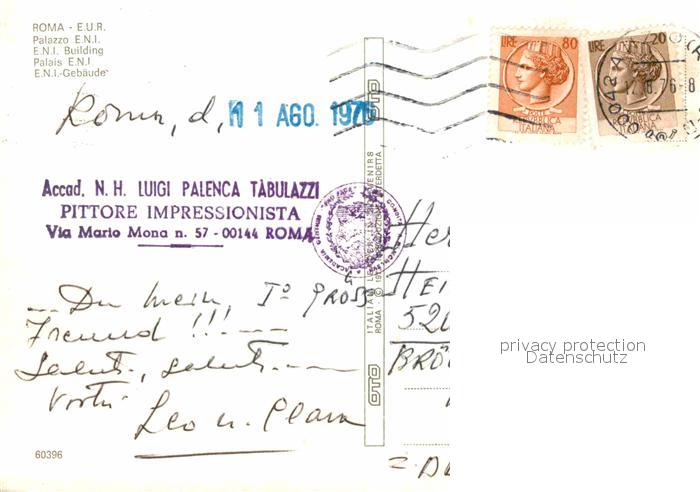 ROMA - E.U.R.
Palazzo E.N.I.
E.N.I. Building
Palais E.N.I
E.N.I.-Gebäude
LIRE 80
POSTE
REPUBBLICA
ITALIANA
LIRE 20
REPUBBLICA
ITALIANA
Roma, d, 11 AGO. 1976
Accad. N. H. LUIGI PALENCA TÀBULAZZI
PITTORE IMPRESSIONISTA
Via Mario Mona n. 57 - 00144 ROMA
Du mein, Iº GROSS
Freund !!!
Salut., salut.
Leo u. Clara
60396
OTO
OTO
Her
HEI
520
BRÖ
privacy protection
Datenschutz